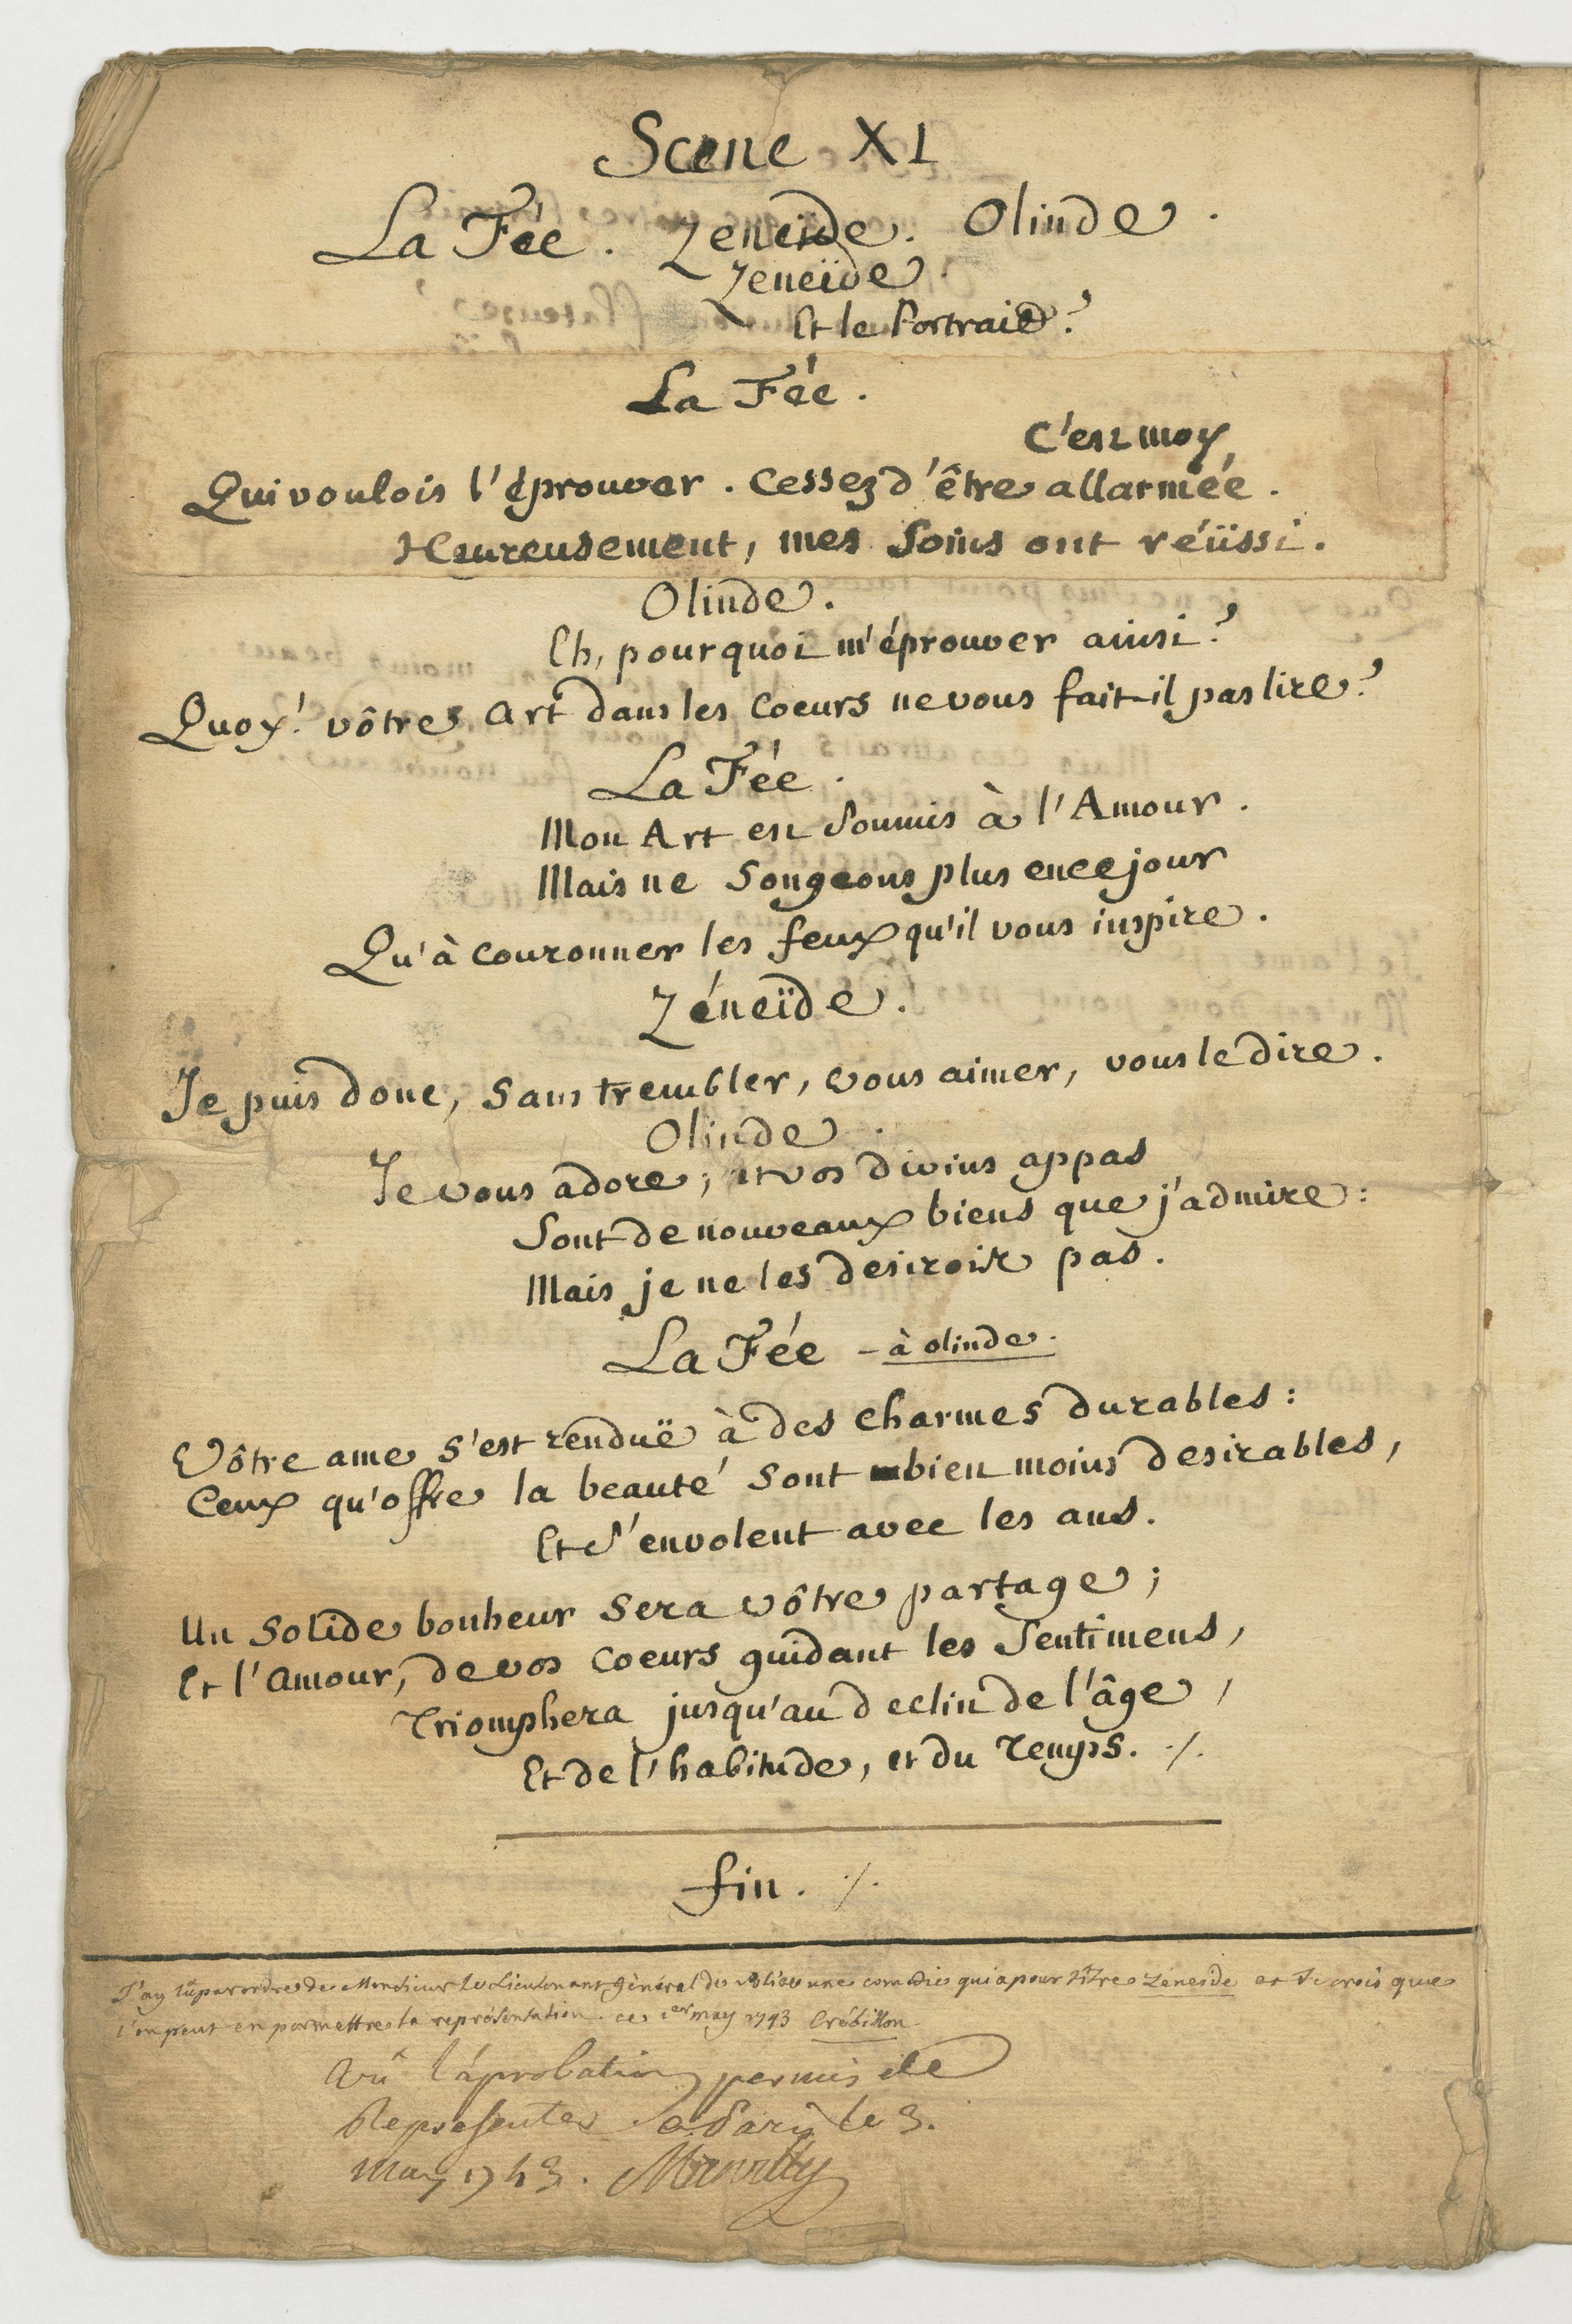 Scene XI
La Fée. Zeneïde. Olinde.
Zeneïde.
Et le Portrait?
La Fée.
C'est moy,
Qui voulois l'éprouver. Cessez d'être allarmée.
Heureusement, mes Soins ont réüssi.
Olinde.
Eh, pourquoi m'éprouver ainsi?
Quoy! vôtre Art dans les Coeurs ne vous fait-il pas lire?
La Fée.
Mon Art est Soumis à l'Amour.
Mais ne Songeons plus en ce jour
Qu'à Couronner les feux qu'il vous inspire.
Zéneïde.
Je puis donc, Sans trembler, vous aimer, vous le dire.
Olinde.
Je vous adore; et vos divins appas
Sont de nouveaux biens que j'admire:
Mais je ne les desirois pas.
La Fée - à olinde.
Vôtre ame s'est renduë à des Charmes durables:
Ceux qu'offre la beauté Sont bien moins desirables,
Et S'envolent avec les ans.
Un Solide bonheur Sera vôtre partage;
Et l'Amour, de vos Coeurs guidant les Sentimens,
Triomphera jusqu'au declin de l'âge,
Et de l'habitude, et du Temps. ./.
fin. ./.
J'ay lû par ordre de Monsieur le Lieutenant général de police une comedie qui a pour titre Zéneide et Je crois que
l'on peut en permettre la représentation. ce 1er may 1743 Crébillon.
Vû l'aprobation permis de
Representer a Paris le 3.
may 1743. Marville